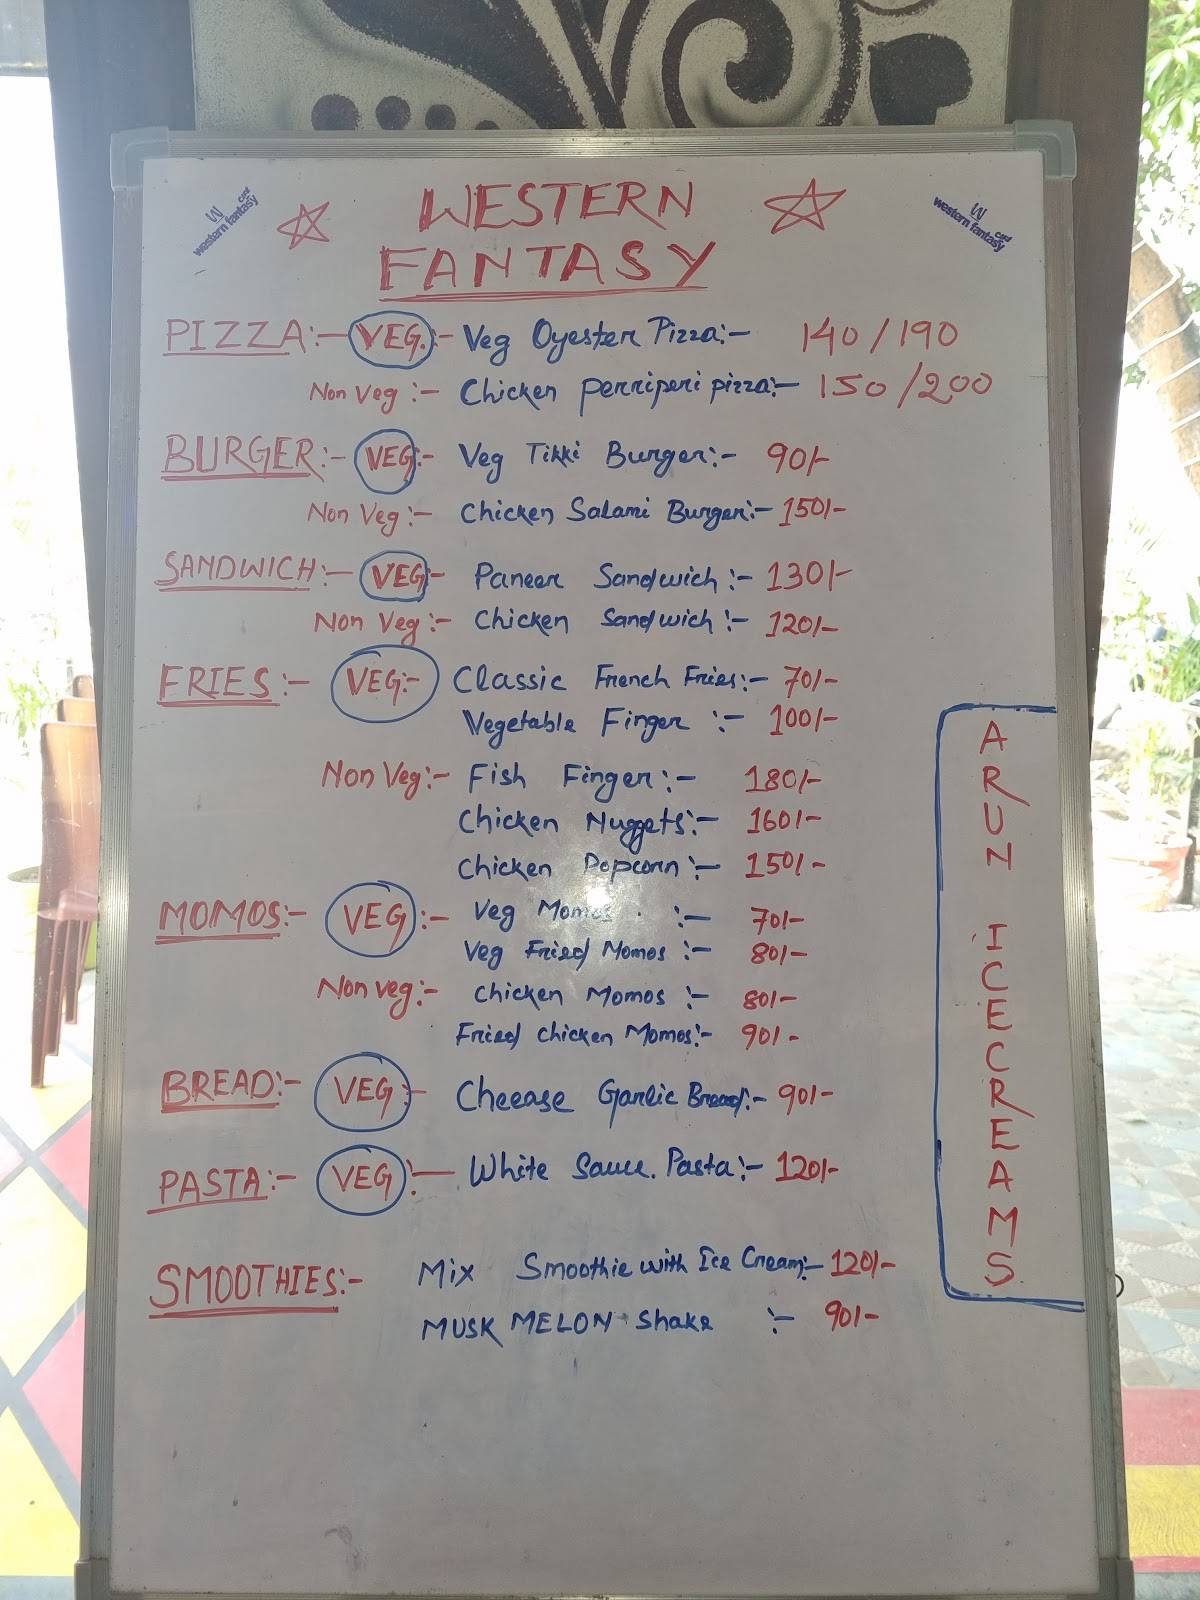 WESTERN
FANTASY
W
western fantasy
café
W
western fantasy
café
PIZZA:- VEG.:- Veg Oyester Pizza:- 140/190
Non Veg :- Chicken Perriperi pizza:- 150/200
BURGER:- VEG:- Veg Tikki Burger:- 90/-
Non Veg:- Chicken Salami Burger:- 150/-
SANDWICH:- VEG:- Paneer Sandwich:- 130/-
Non Veg:- Chicken Sandwich:- 120/-
FRIES:- VEG:- Classic French Fries:- 70/-
Vegetable Finger :- 100/-
Non Veg:- Fish Finger:- 180/-
Chicken Nuggets:- 160/-
Chicken Popcorn:- 150/-
MOMOS:- VEG:- Veg Momos :- 70/-
Veg Fried Momos :- 80/-
Non veg:- Chicken Momos :- 80/-
Fried Chicken Momos:- 90/-
BREAD:- VEG:- Cheease Garlic Bread:- 90/-
PASTA:- VEG:- White Sauce. Pasta:- 120/-
SMOOTHIES:- Mix Smoothie with Ice Cream:- 120/-
MUSK MELON Shake :- 90/-
ARUN ICECREAMS